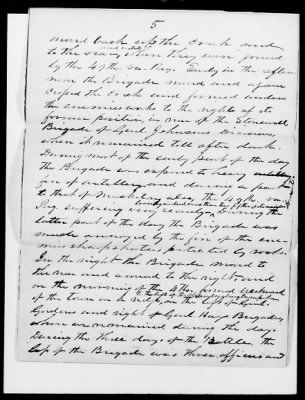 5
moved back up the Creek and
to the rear, and while there, were joined
by the 49th Va Reg. Early in the after
noon the Brigade moved and again
crossed the Creek and formed under
the enemies works to the right of its
former position, in rear of the Stonewall
Brigade of Genl Johnsons Division,
where it remained till after dark.
During most of the early part of the day
the Brigade was exposed to heavy artillery
fire of artillery and during a part
to that of Musketry also, the 49th Va
Reg suffering very severely. During the
latter part of the day the Brigade was
much annoyed by the fire of the ene-
mies sharpshooters protected by rocks.
In the night the Brigade moved to
the rear and around to the right and
on the morning of the 4th, formed Westward
of the town on a hill, on the left of Genl
Gordons and right of Genl Hays Brigades,
where we remained during the day.
During the three days of the Battle, the
loss of the Brigade was three officers and